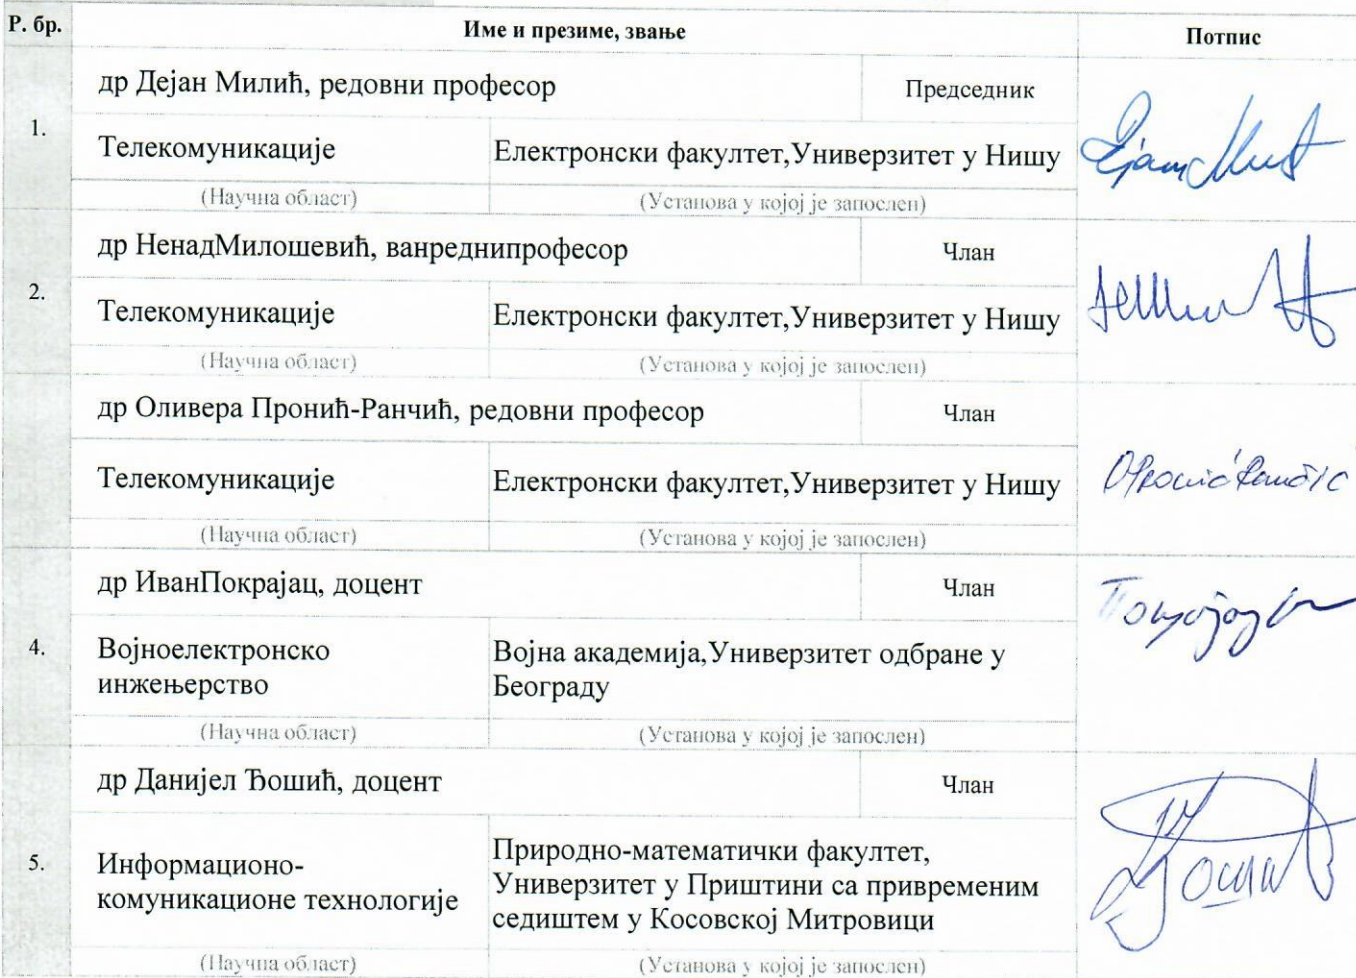 Р. бр. Име и презиме, звање Потпис
др Дејан Милић, редовни професор Председник
1.
Телекомуникације Електронски факултет,Универзитет у Нишу
(Научна област) (Установа у којој је запослен)
др НенадМилошевић, ванреднипрофесор Члан
2.
Телекомуникације Електронски факултет,Универзитет у Нишу
(Научна област) (Установа у којој је запослен)
др Оливера Пронић-Ранчић, редовни професор Члан
Телекомуникације Електронски факултет,Универзитет у Нишу
(Научна област) (Установа у којој је запослен)
др ИванПокрајац, доцент Члан
4.
Војноелектронско
инжењерство
Војна академија,Универзитет одбране у
Београду
(Научна област) (Установа у којој је запослен)
др Данијел Ђошић, доцент Члан
5.
Информационо-
комуникационе технологије
Природно-математички факултет,
Универзитет у Приштини са привременим
седиштем у Косовској Митровици
(Научна област) (Установа у којој је запослен)